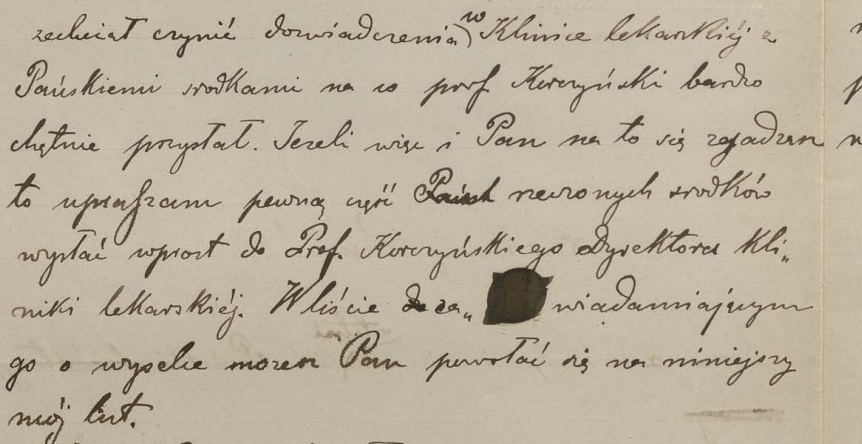 zechciał czynić doświadczenia w Klinice lekarskiéj z
Pańskiemi srodkami na co prof Korczyński bardzo
chętnie przystał. Jezeli więc i Pan na to się zgadzan
to upraszam pewną część rzeczonych srodków
wysłać wprost do Prof. Korczyńskiego Dyrektora Kli„
niki lekarskiéj. W liście za„ wiadamiającym
go o wysełce mozesz Pan powołać się na niniejszy
mój list.